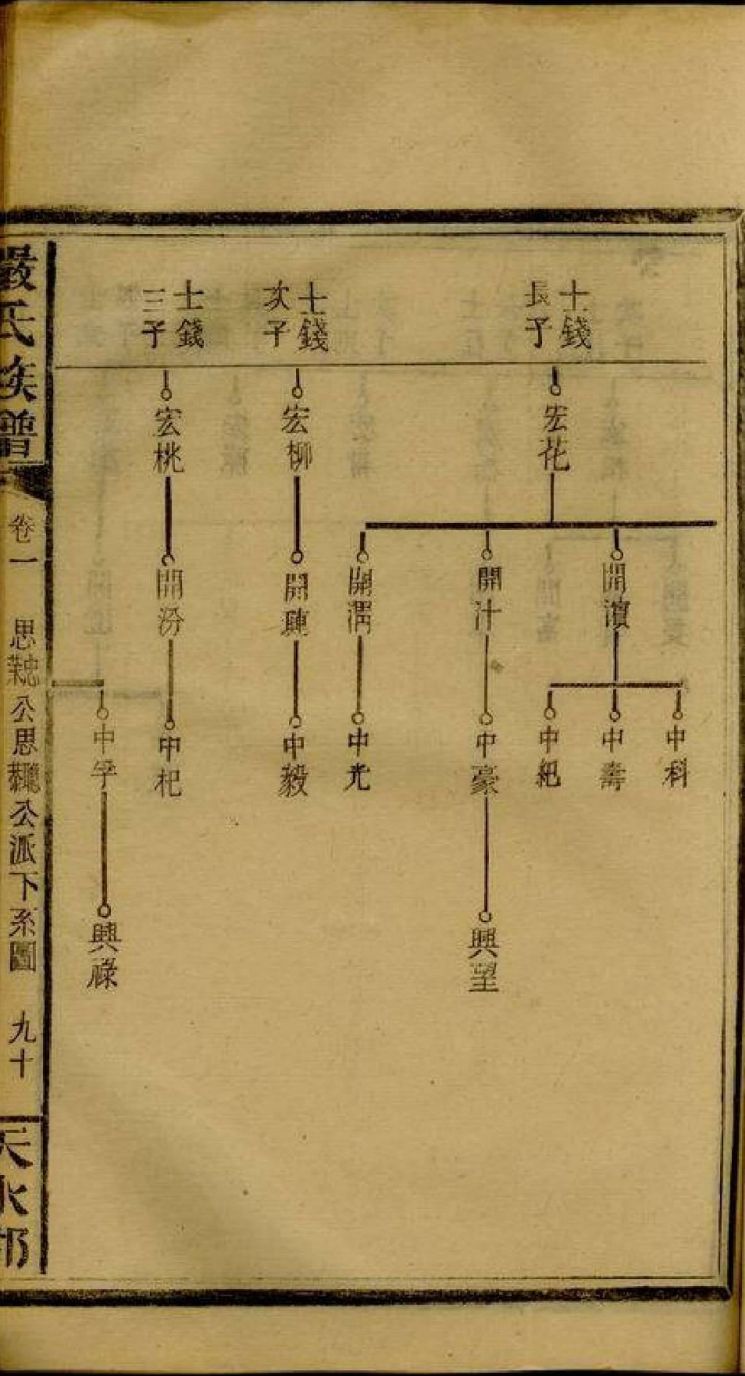 士錢
長子
宏花
開濵
中科
中壽
中紀
開汁
中豪
興望
開渭
中光
士錢
次子
宏柳
開璉
中毅
士錢
三子
宏桃
開汾
中杞
中孚
興祿
嚴氏族譜
卷一
思 公思 公派下系圖
九十
天水郡